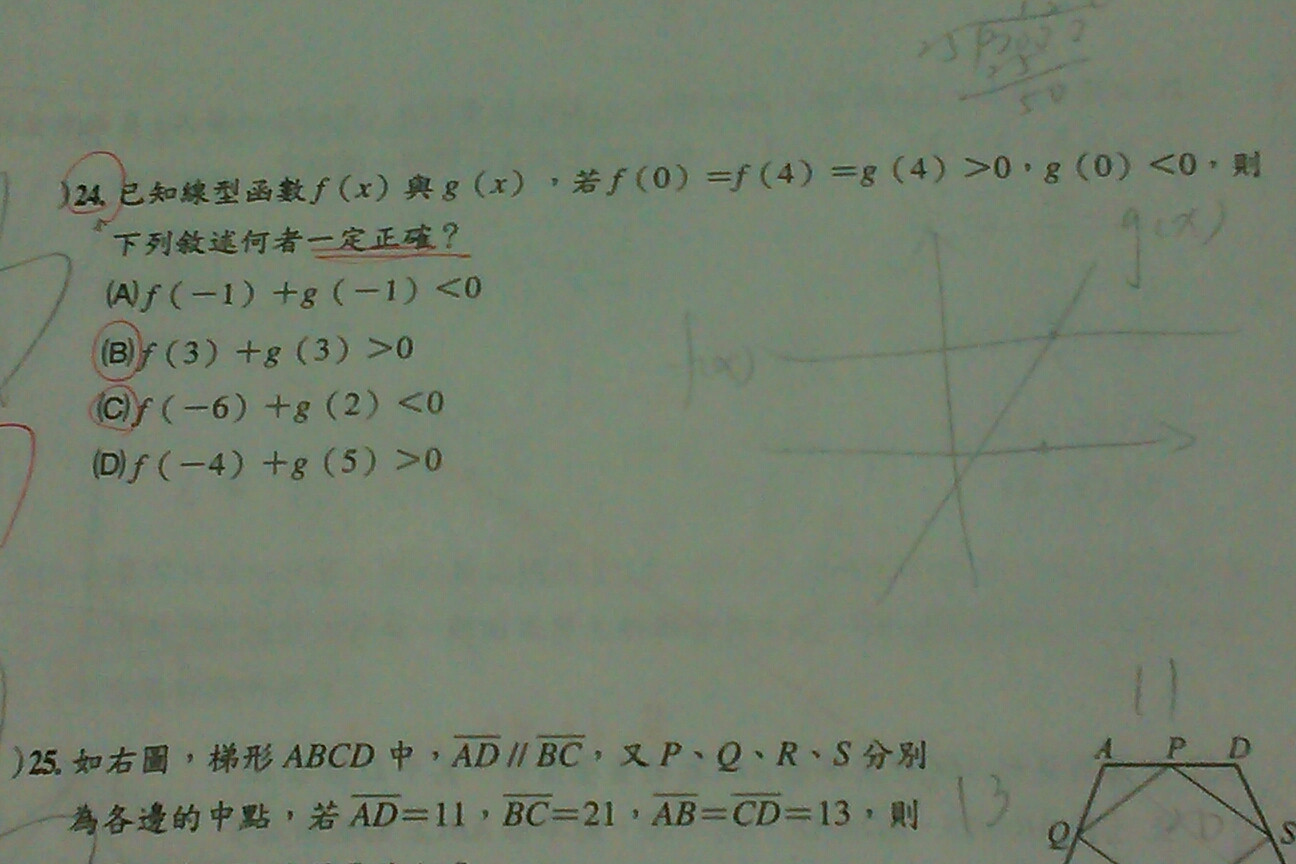 )24. 已知線型函數 f(x) 與 g(x)，若 f(0)=f(4)=g(4)>0，g(0)<0，則
下列敘述何者一定正確？
(A) f(-1)+g(-1)<0
(B) f(3)+g(3)>0
(C) f(-6)+g(2)<0
(D) f(-4)+g(5)>0
g(x)
f(x)
11
)25. 如右圖，梯形 ABCD 中，A̅D̅ // B̅C̅，又 P、Q、R、S 分別
為各邊的中點，若 A̅D̅=11，B̅C̅=21，A̅B̅=C̅D̅=13，則
13
A P D
Q S